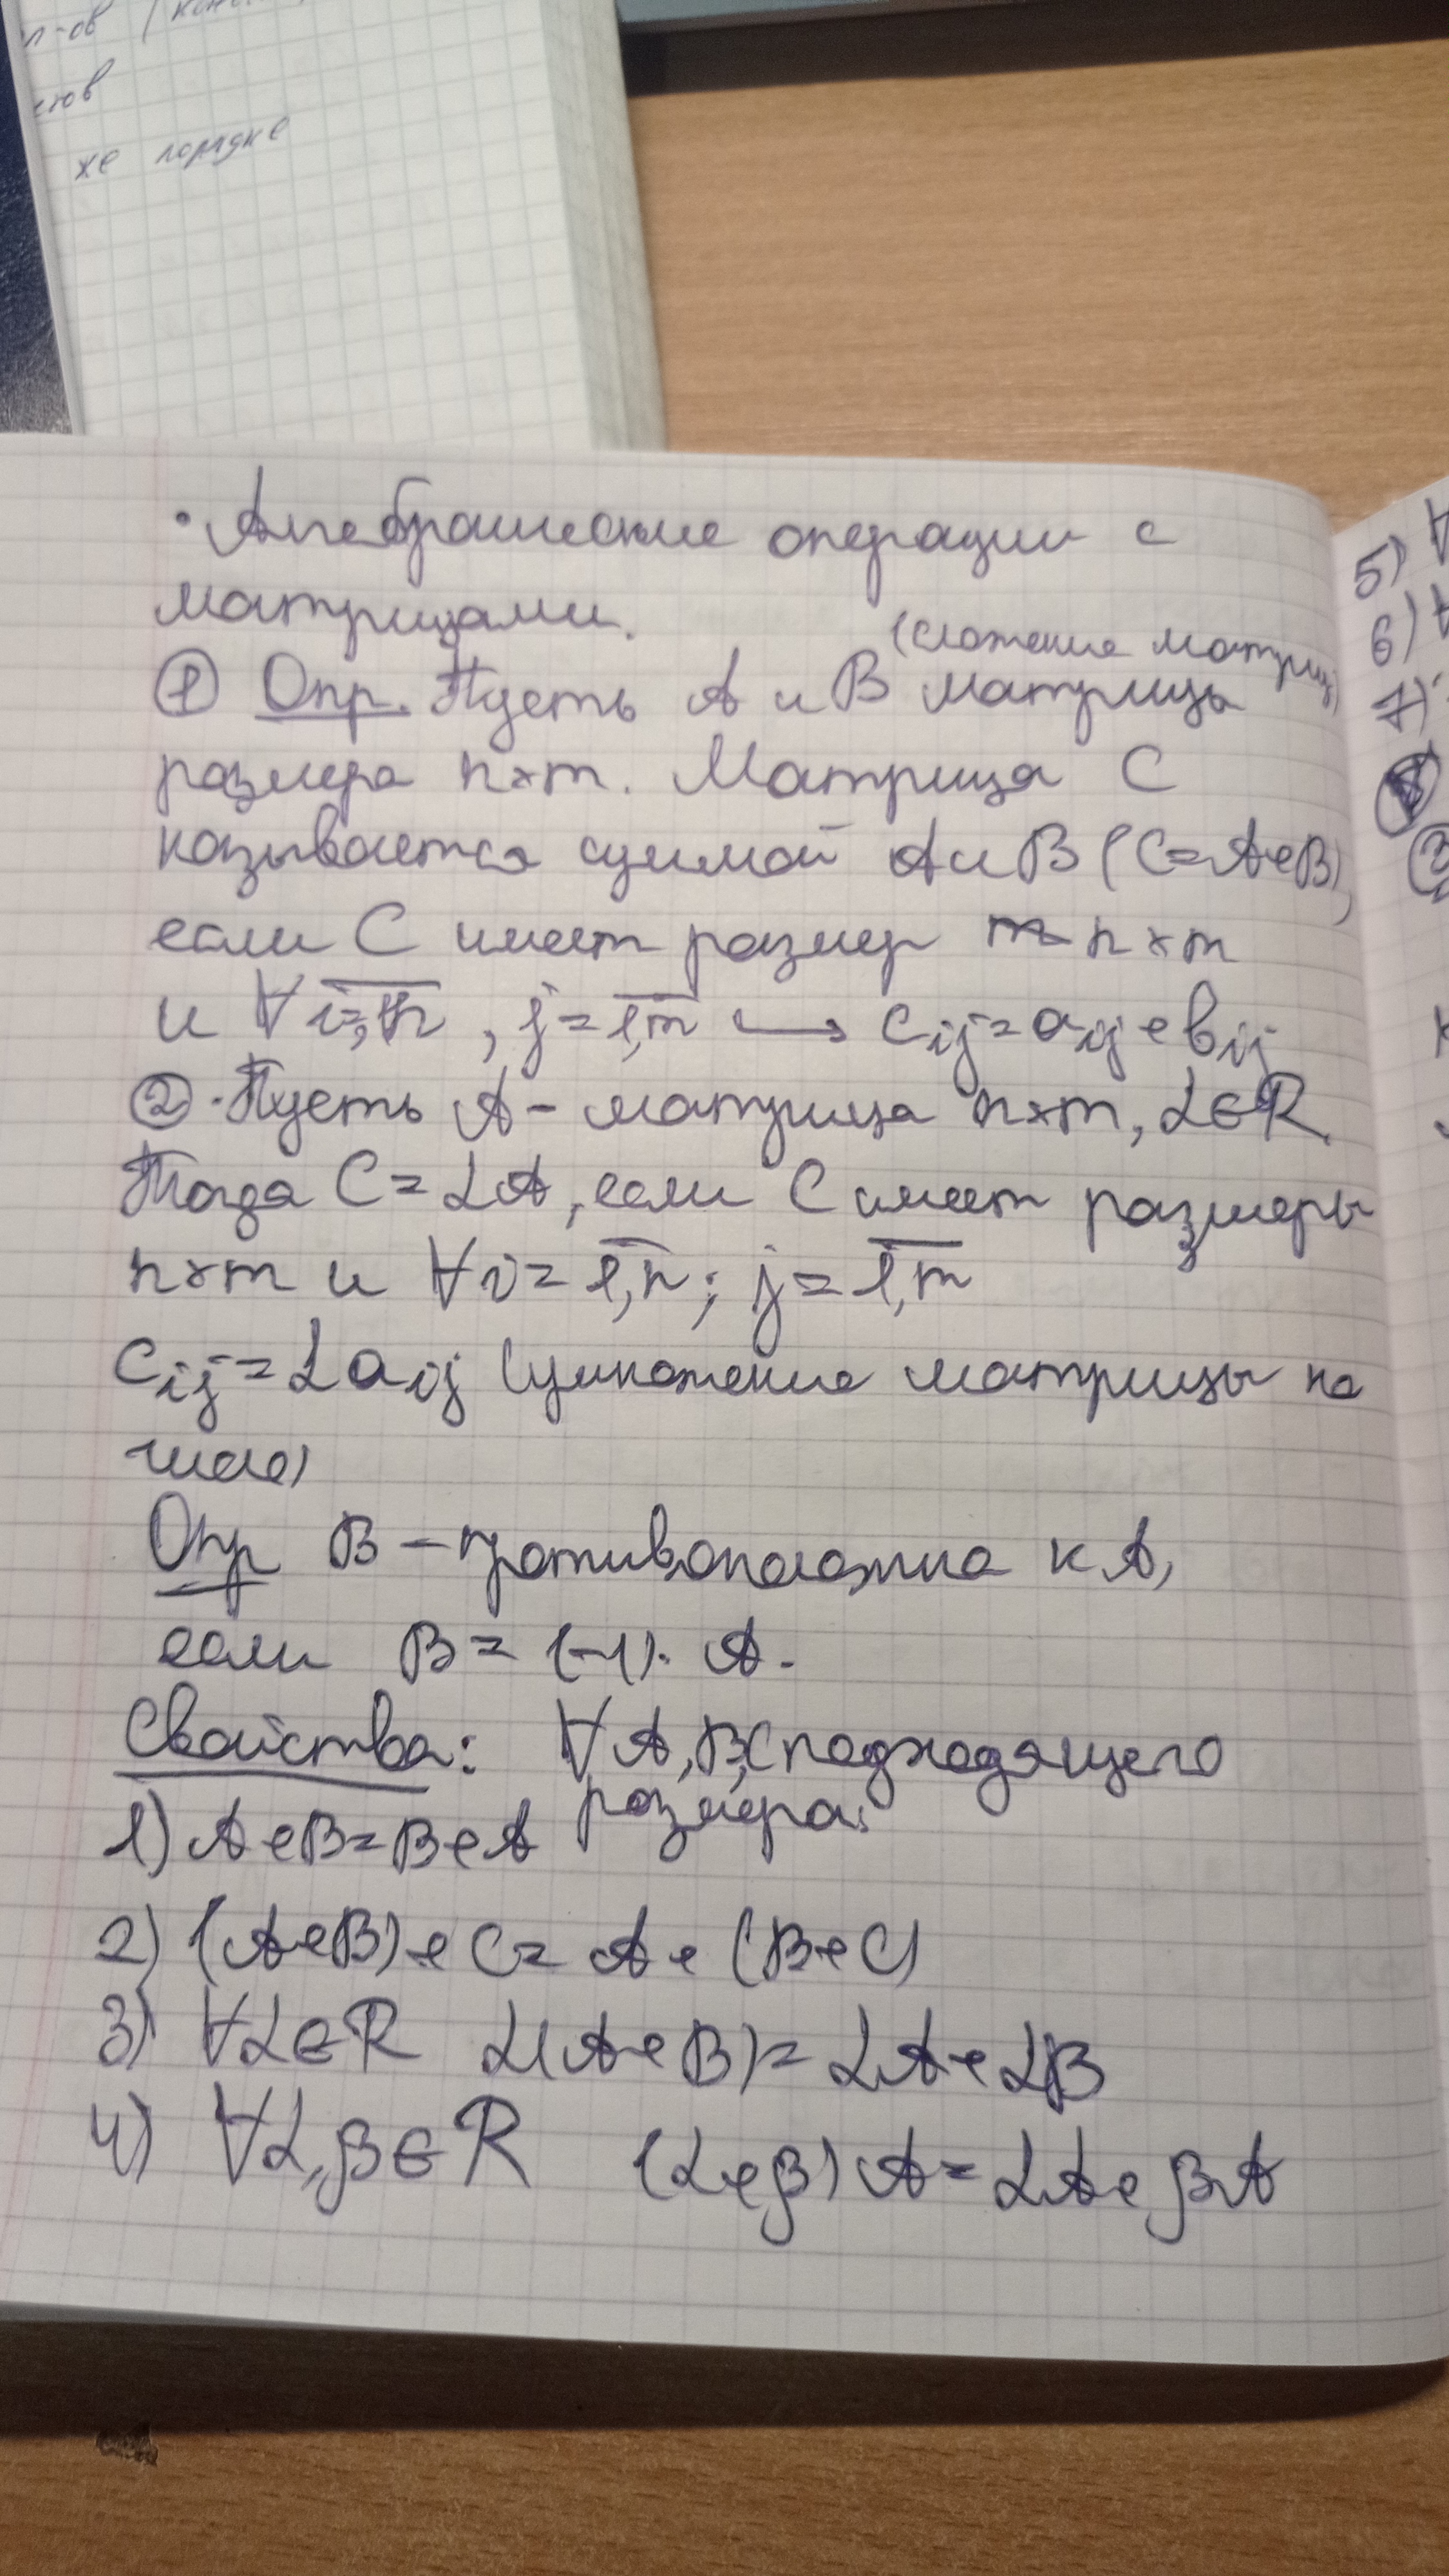 же порядке
• Алгебраические операции с
матрицами.
(сложение матриц)
① Опр. Пусть A и B матрицы
размера n×m. Матрица C
называется суммой A и B (C=A+B),
если C имеет размер n×m
и ∀ i=1,n, j=1,m ↪ cij=aij+bij
② Пусть A - матрица n×m, α∈R.
Тогда C=αA, если C имеет размеры
n×m и ∀i=1,n; j=1,m
cij=αaij (умножение матрицы на
число)
Опр B - противоположна к A,
если B=(-1)·A.
Свойства: ∀A,B,C подходящего
размера:
1) A+B=B+A
2) (A+B)+C=A+(B+C)
3) ∀α∈R α(A+B)=αA+αB
4) ∀α,β∈R (α+β)A=αA+βA
5) ∀
6) ∀
7)
③